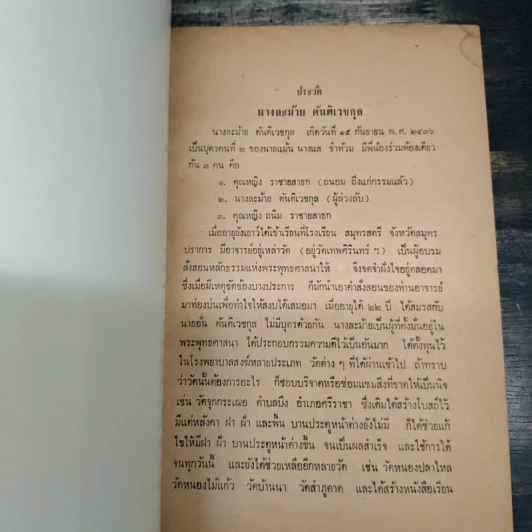 ประวัติ
นางละม้าย ตันติเวชกุล
นางละม้าย ตันติเวชกุล เกิดวันที่ ๑๕ กันยายน พ.ศ. ๒๔๓๖
เป็นบุตรคนที่ ๒ ของนายแม้น นางแส ขำท้วม มีพี่น้องร่วมท้องเดียว
กัน ๓ คน คือ
๑. คุณหญิง ราชายสาธก (ถนอม ถึงแก่กรรมแล้ว)
๒. นางละม้าย ตันติเวชกุล (ผู้ล่วงลับ)
๓. คุณหญิง ถนิม ราชายสาธก
เมื่ออายุยังเยาว์ได้เข้าเรียนที่โรงเรียน สมุทรสตรี จังหวัดสมุทร
ปราการ มีอาจารย์อยู่เหล่าวัด (อยู่วัดเทพศิรินทร์ ฯ) เป็นผู้อบรม
สั่งสอนหลักธรรมแห่งพระพุทธศาสนาให้ จึงจดจำฝังใจอยู่ตลอดมา
ซึ่งเมื่อมีเหตุขัดข้องบางประการ ก็มักนำเอาคำสั่งสอนของท่านอาจารย์
มาท่องบ่นเพื่อทำใจให้สงบได้เสมอมา เมื่ออายุได้ ๒๒ ปี ได้สมรสกับ
นายอั๋น ตันติเวชกุล ไม่มีบุตรด้วยกัน นางละม้ายเป็นผู้ที่ตั้งมั่นอยู่ใน
พระพุทธศาสนา ได้ประกอบกรรมความดีไว้เป็นอันมาก ได้ตั้งทุนไว้
ในโรงพยาบาลสงฆ์หลายประเภท วัดต่าง ๆ ที่ได้ผ่านเข้าไป ถ้าทราบ
ว่าวัดนั้นต้องการอะไร ก็ชอบบริจาคหรือซ่อมแซมสิ่งที่ขาดให้เป็นนิจ
เช่น วัดจุกกระเฌอ ตำบลบึง อำเภอศรีราชา ซึ่งเดิมได้สร้างโบสถ์ไว้
มีแต่หลังคา ฝา ฝ้า และพื้น บานประตูหน้าต่างยังไม่มี ก็ได้ช่วยแก้
ไขให้มีฝา ฝ้า บานประตูหน้าต่างขึ้น จนเป็นผลสำเร็จ และใช้การได้
จนทุกวันนี้ และยังได้ช่วยเหลืออีกหลายวัด เช่น วัดหนองปลาไหล
วัดหนองไม้แก้ว วัดบ้านนา วัดสำภูคาด และได้สร้างหนังสือเรียน